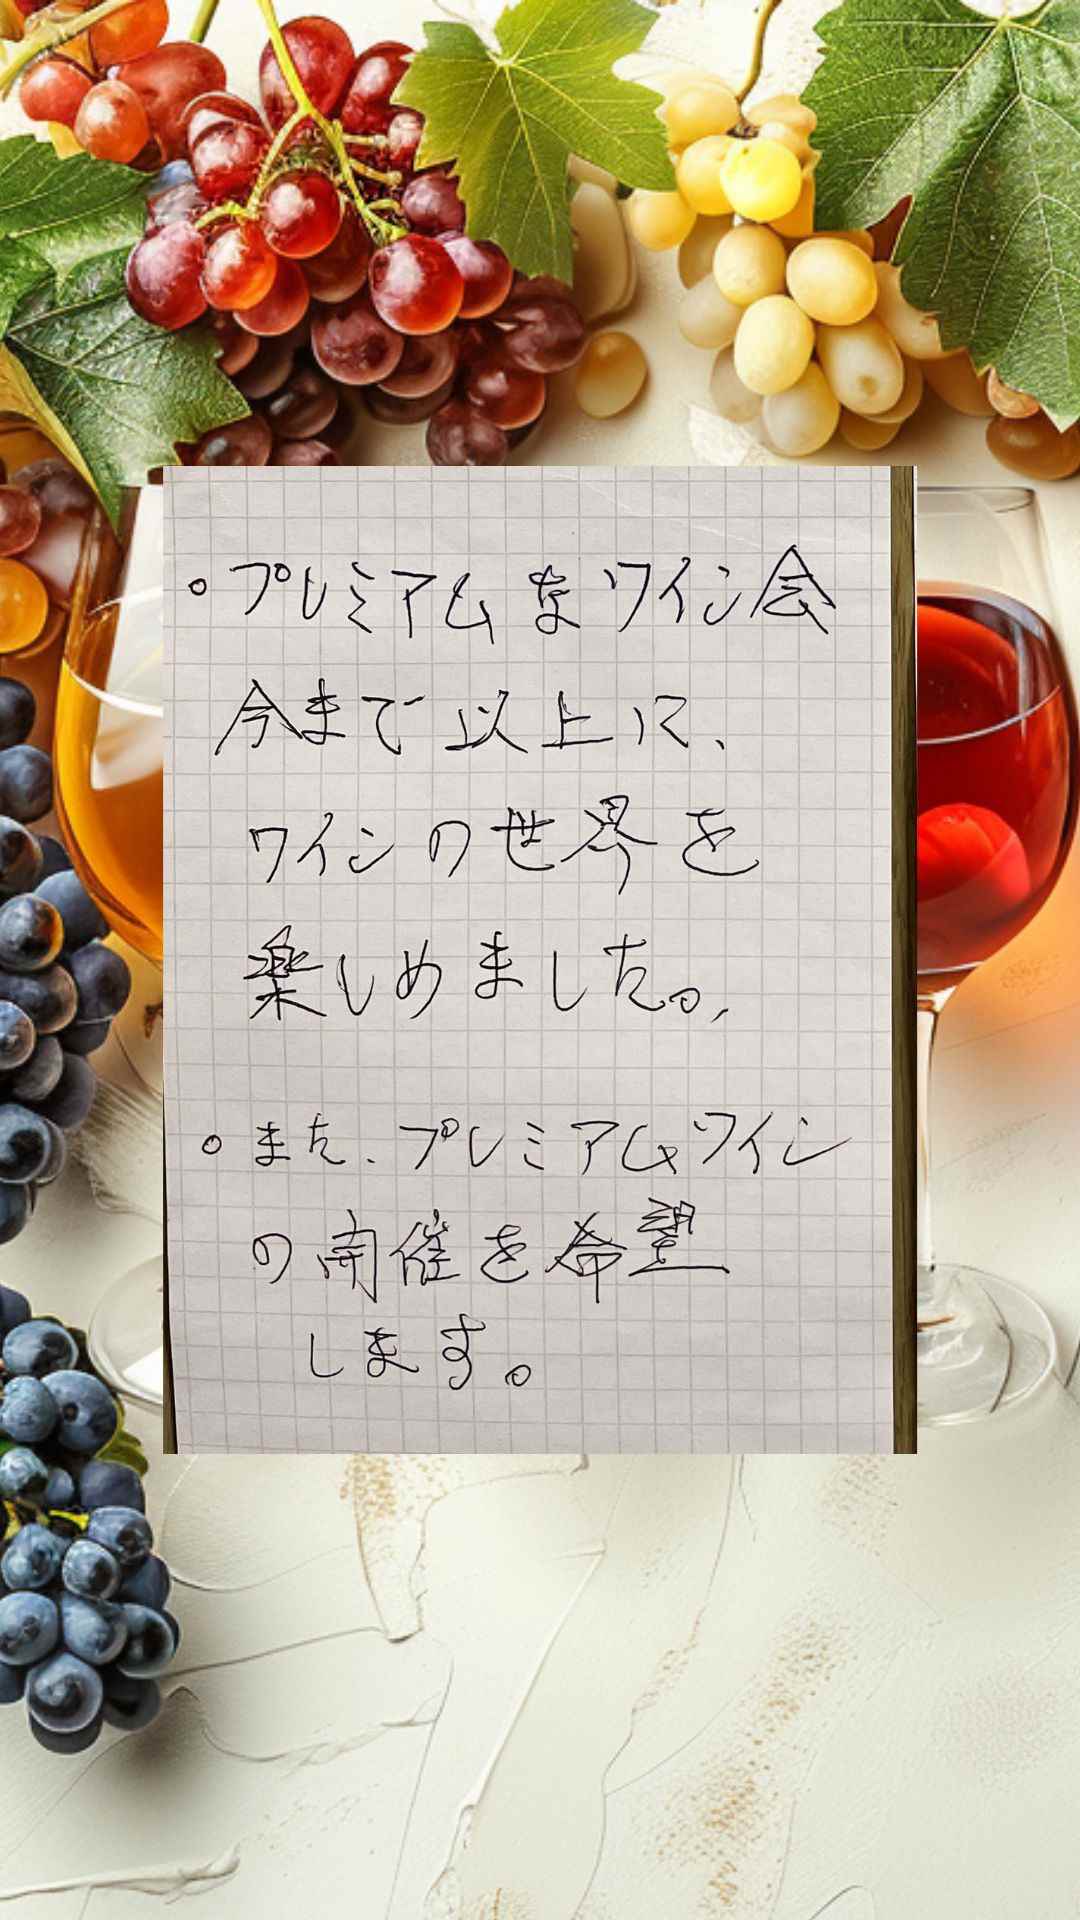 。プレミアムなワイン会
今まで以上に、
ワインの世界を
楽しめました。,
。また、プレミアムワイン
の開催を希望
します。